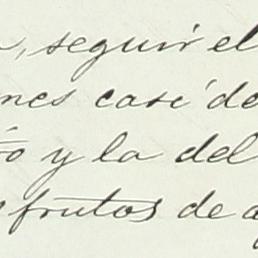 , seguir el
nes casi de
o y la del
frutos de a